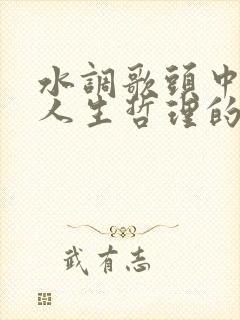 水調歌頭中
人生哲理的
武有志